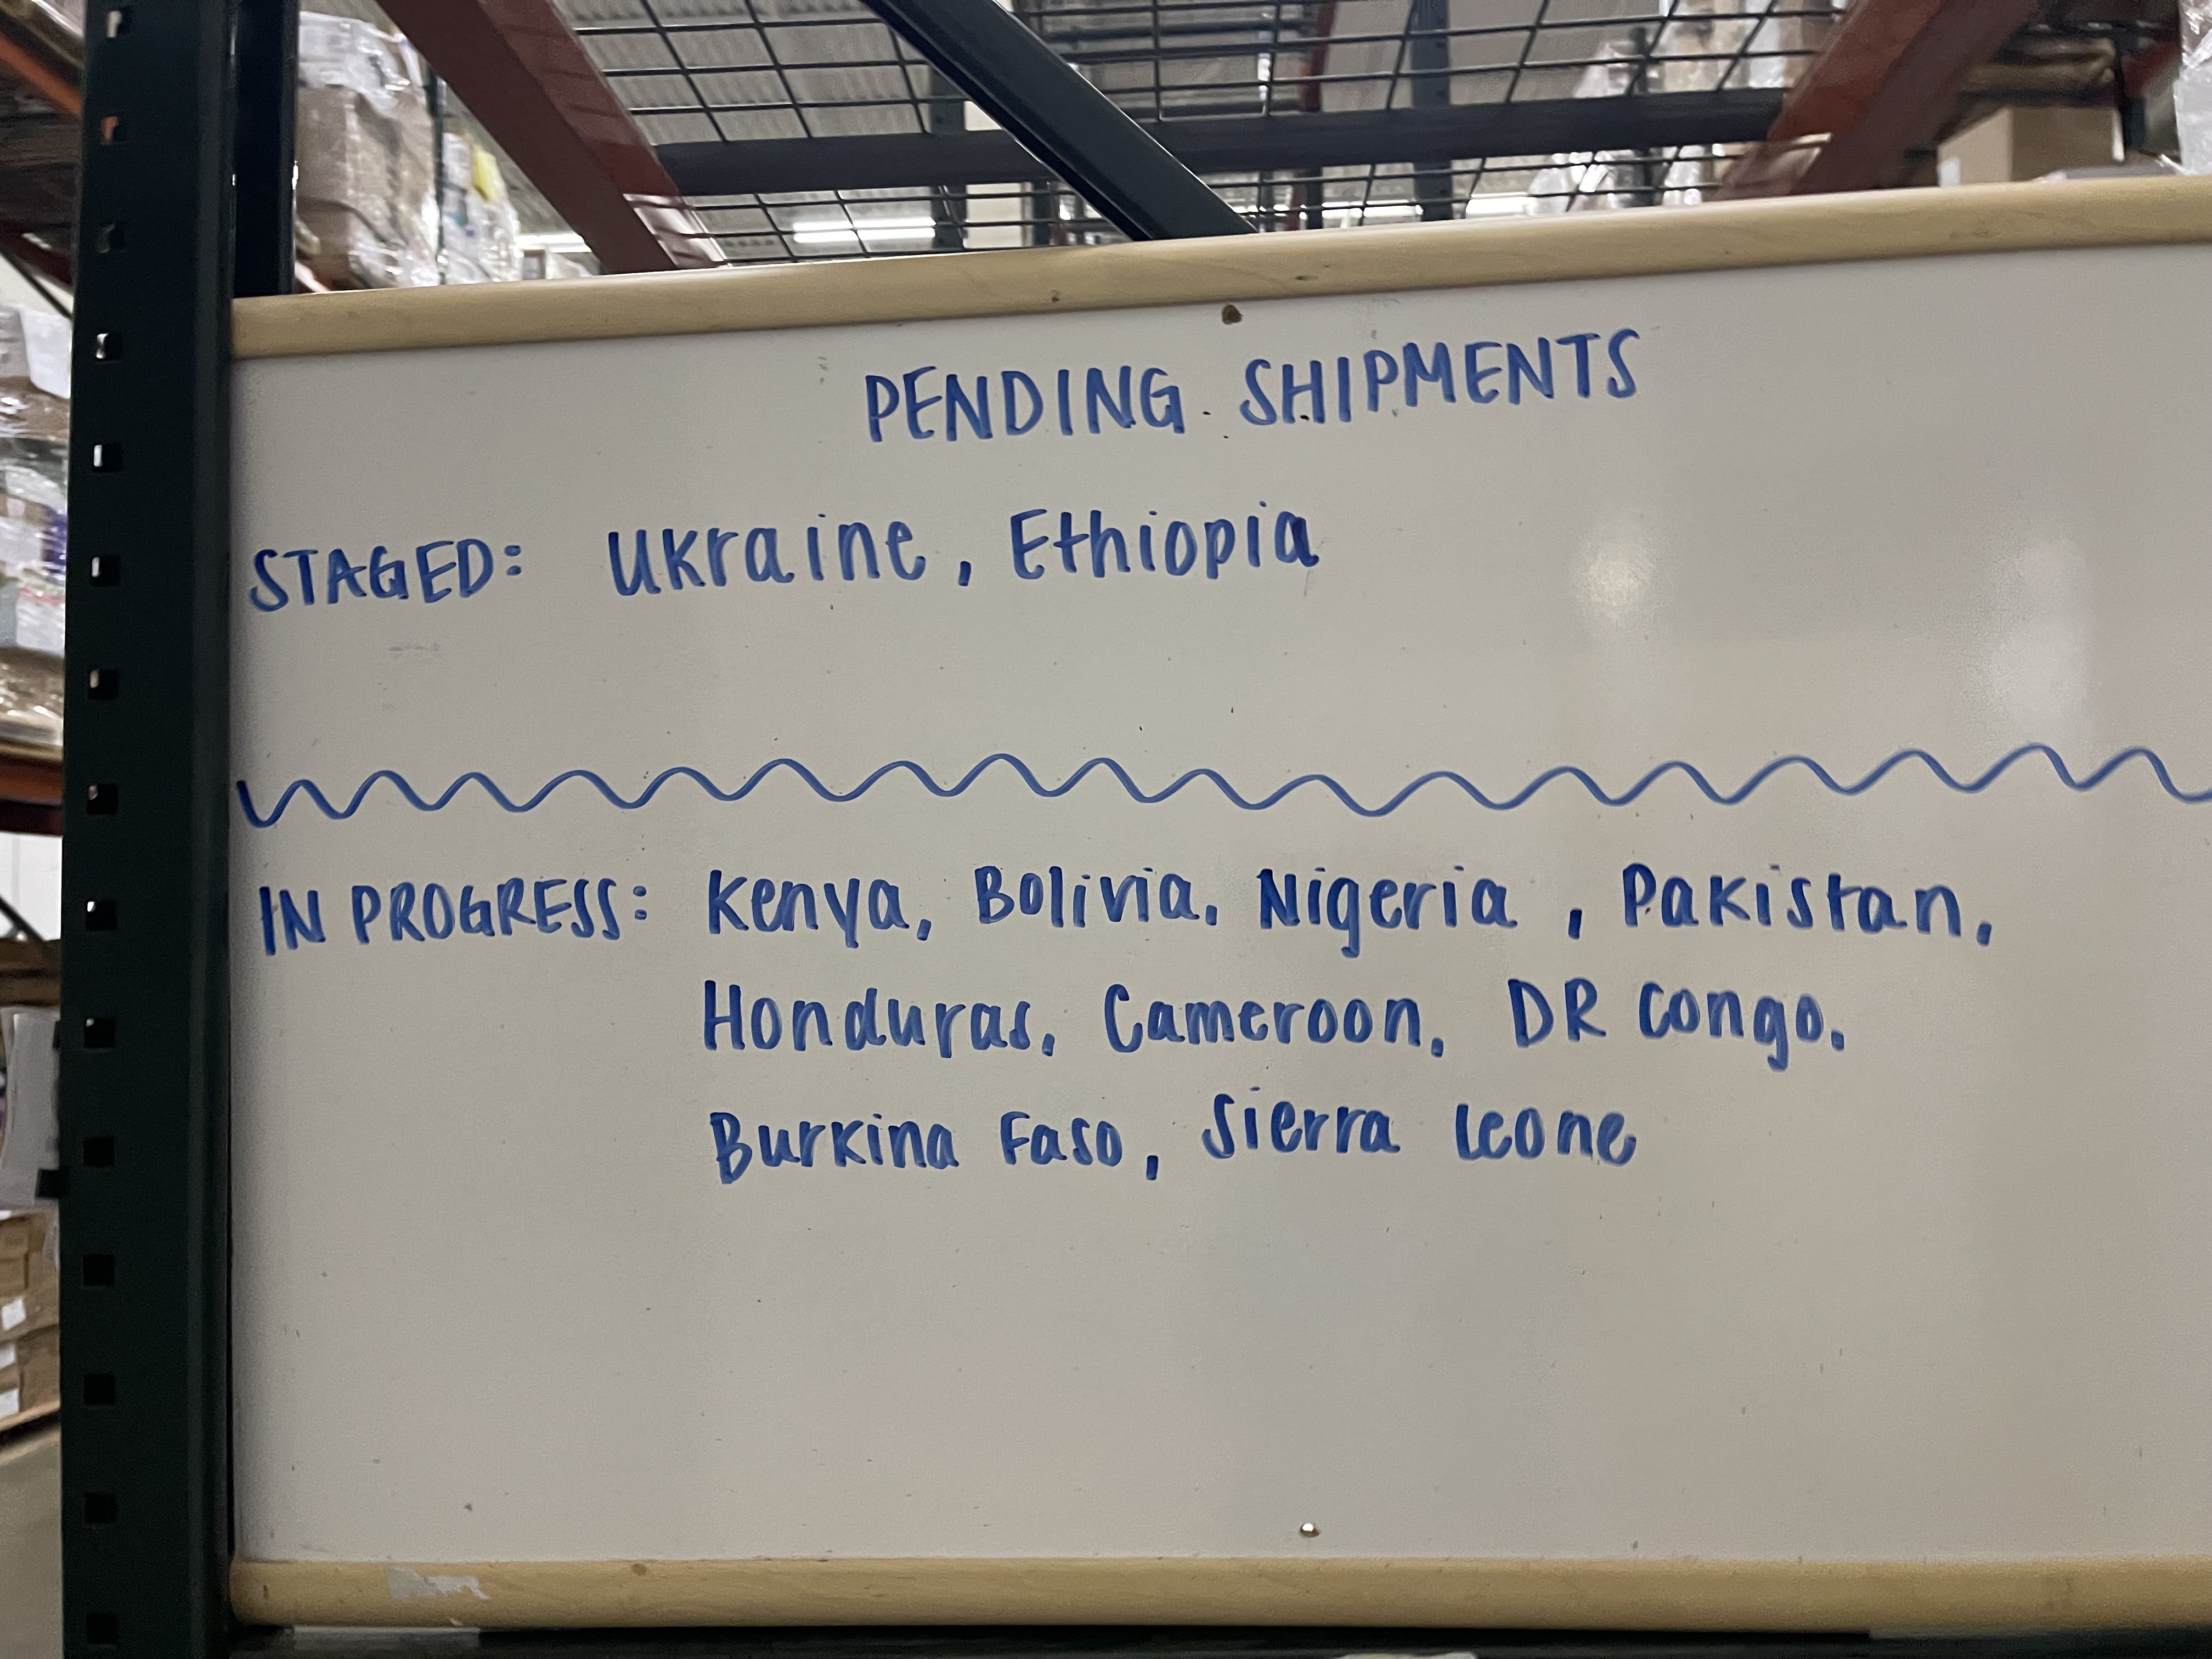 PENDING SHIPMENTS
STAGED: Ukraine, Ethiopia
IN PROGRESS: Kenya, Bolivia, Nigeria, Pakistan,
Honduras, Cameroon, DR Congo,
Burkina Faso, Sierra Leone